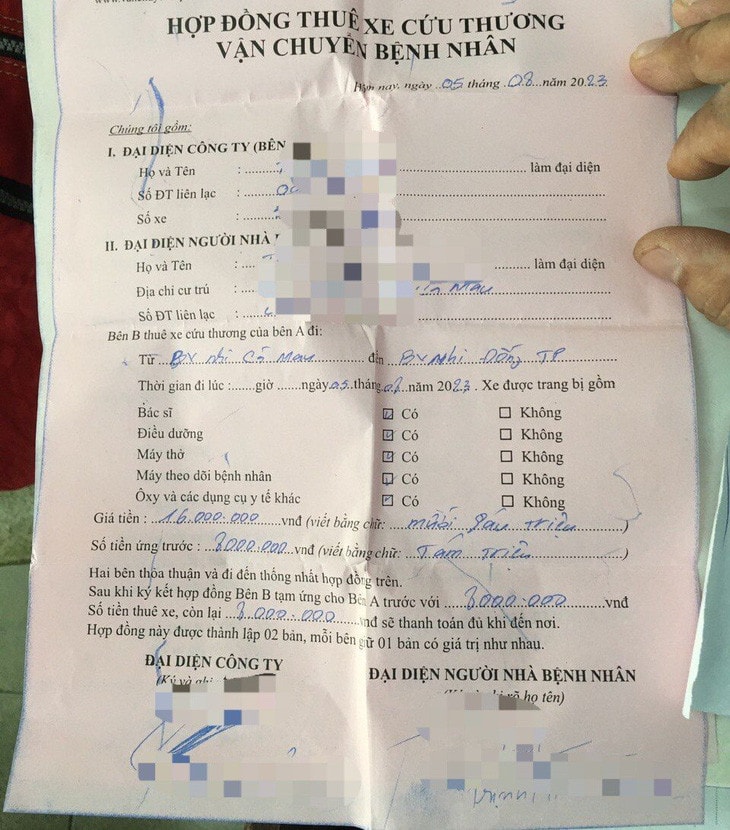 HỢP ĐỒNG THUÊ XE CỨU THƯƠNG
VẬN CHUYỂN BỆNH NHÂN
Hôm nay, ngày 05 tháng 08 năm 2023
Chúng tôi gồm:
I. ĐẠI DIỆN CÔNG TY (BÊN
Họ và Tên : làm đại diện
Số ĐT liên lạc :
Số xe :
II. ĐẠI DIỆN NGƯỜI NHÀ
Họ và Tên : làm đại diện
Địa chỉ cư trú : Mau
Số ĐT liên lạc :
Bên B thuê xe cứu thương của bên A đi:
Từ BV nhi Cà Mau đến BV Nhi Đồng TP
Thời gian đi lúc : giờ ngày 05 tháng 08 năm 2023 . Xe được trang bị gồm
Bác sĩ ☑ Có ☐ Không
Điều dưỡng ☑ Có ☐ Không
Máy thở ☑ Có ☐ Không
Máy theo dõi bệnh nhân ☑ Có ☐ Không
Ôxy và các dụng cụ y tế khác ☑ Có ☐ Không
Giá tiền : 16.000.000 vnđ (viết bằng chữ: mười sáu triệu )
Số tiền ứng trước : 8000.000 vnđ (viết bằng chữ: Tám triệu )
Hai bên thỏa thuận và đi đến thống nhất hợp đồng trên.
Sau khi ký kết hợp đồng Bên B tạm ứng cho Bên A trước với 8000.000 vnđ
Số tiền thuê xe, còn lại 8.000.000 vnđ sẽ thanh toán đủ khi đến nơi.
Hợp đồng này được thành lập 02 bản, mỗi bên giữ 01 bản có giá trị như nhau.
ĐẠI DIỆN CÔNG TY ĐẠI DIỆN NGƯỜI NHÀ BỆNH NHÂN
(Ký và ghi rõ họ tên)